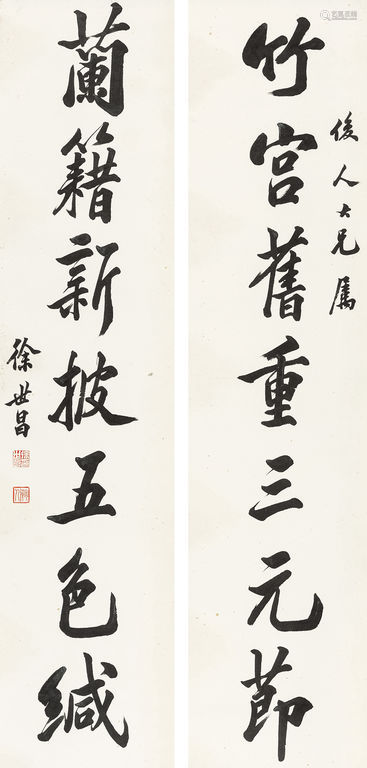 竹宫舊重三元節
俊人大兄屬
蘭籍新披五色緘
徐世昌